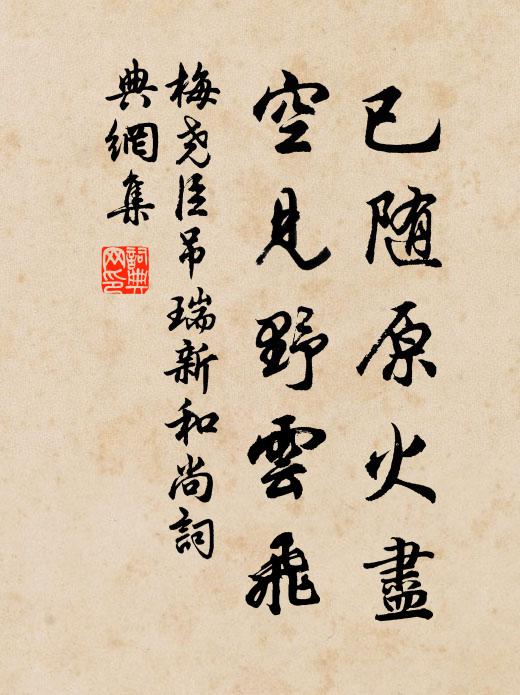 已随原火盡
空見野雲飛
梅尧臣吊瑞新和尚詞
典網集
詞典
网印